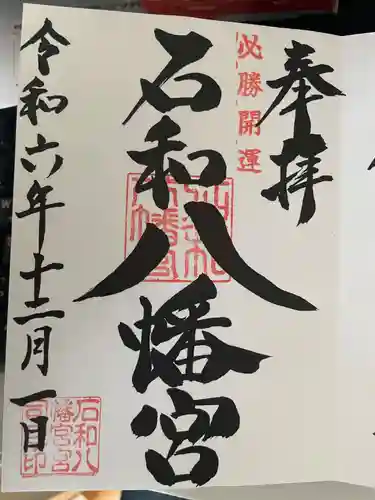 奉拝
必勝開運
石和八幡宮
石和八幡宮
令和六年十二月一日
石和八
幡宮宮
司印